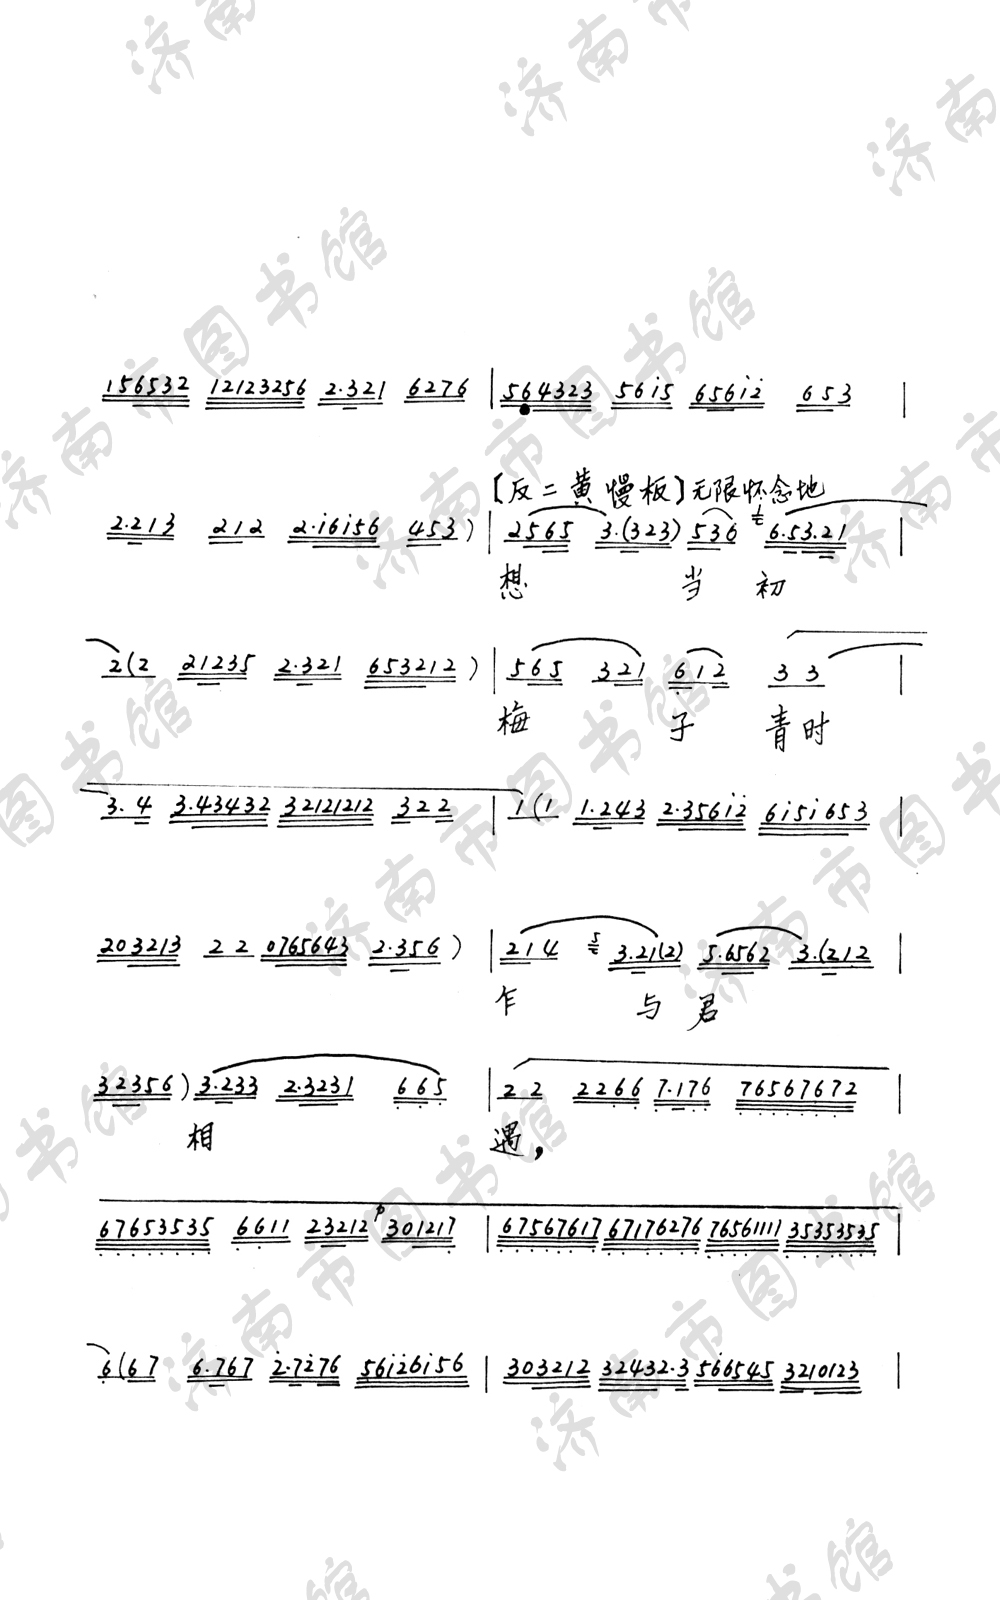 156532 12123256 2·321 6276 | 564323 56i5 656i2̇ 653 |
[反二黄慢板]无限怀念地
2·213 212 2·i6i56 453) | 2565 3·(323) 536 6·53·21 |
想 当 初
2(2 21235 2·321 653212) | 565 321 612 33 |
梅 子 青时
3·4 3·43432 32121212 322 | 1(1 1·243 2·356i2̇ 6i5i653 |
203213 22 0765643 2·356) | 214 5 3·21(2) 5·6562 3·(212 |
乍 与 君
32356) 3·233 2·3231 665 | 22 2266 7·176 76567672 |
相 遇,
67653535 6611 23212 301217 | 67567617 67176276 76561111 35353535 |
6(67 6·767 2̇·72̇76 56i2̇6i56 | 303212 32432·3 566545 3210123 |
济南市图书馆